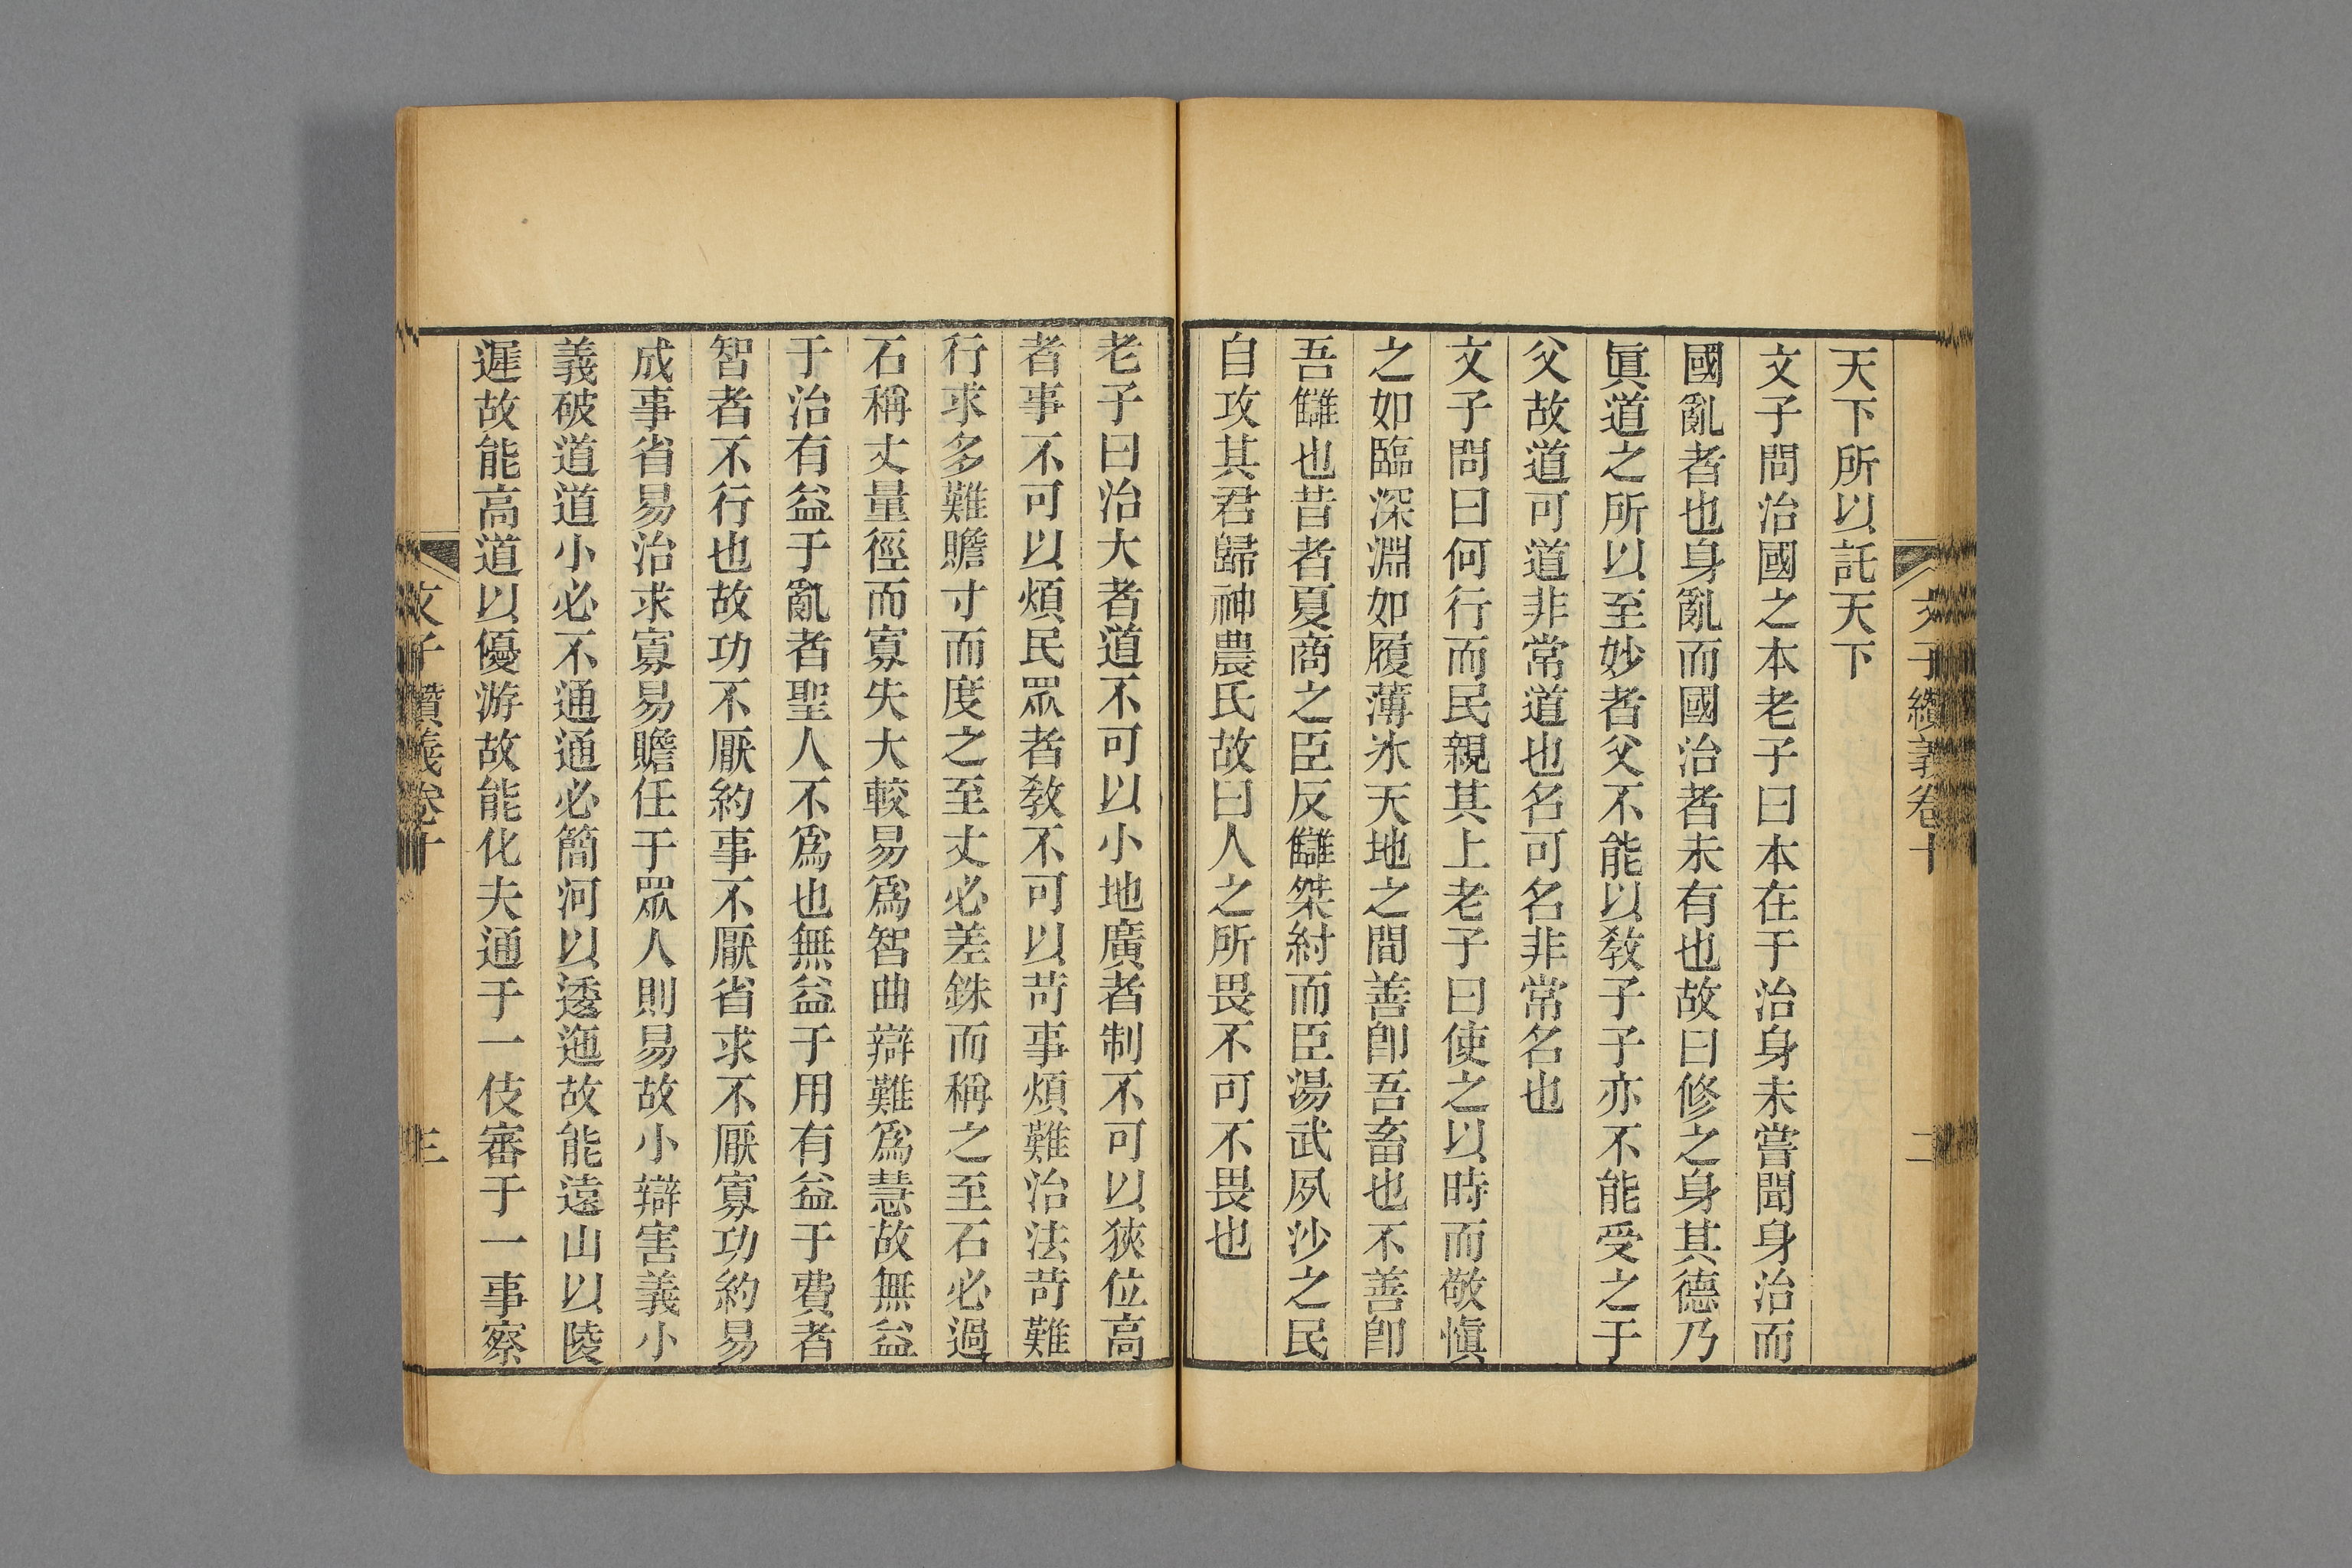 文子纘義卷十 二
天下所以託天下
文子問治國之本老子曰本在于治身未嘗聞身治而
國亂者也身亂而國治者未有也故曰修之身其德乃
眞道之所以至妙者父不能以敎子子亦不能受之于
父故道可道非常道也名可名非常名也
文子問曰何行而民親其上老子曰使之以時而敬愼
之如臨深淵如履薄冰天地之間善卽吾畜也不善卽
吾讎也昔者夏商之臣反讎桀紂而臣湯武夙沙之民
自攻其君歸神農氏故曰人之所畏不可不畏也
老子曰治大者道不可以小地廣者制不可以狹位高
者事不可以煩民眾者敎不可以苛事煩難治法苛難
行求多難贍寸而度之至丈必差銖而稱之至石必過
石稱丈量徑而寡失大較易爲智曲辯難爲慧故無益
于治有益于亂者聖人不爲也無益于用有益于費者
智者不行也故功不厭約事不厭省求不厭寡功約易
成事省易治求寡易贍任于眾人則易故小辯害義小
義破道道小必不通通必簡河以逶迤故能遠山以陵
遲故能高道以優游故能化夫通于一伎審于一事察
文子纘義卷十 三